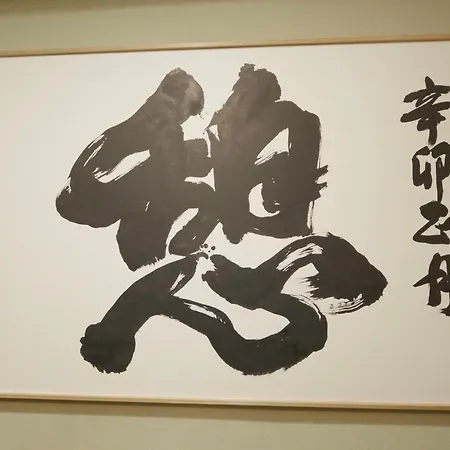 憩
辛卯正月